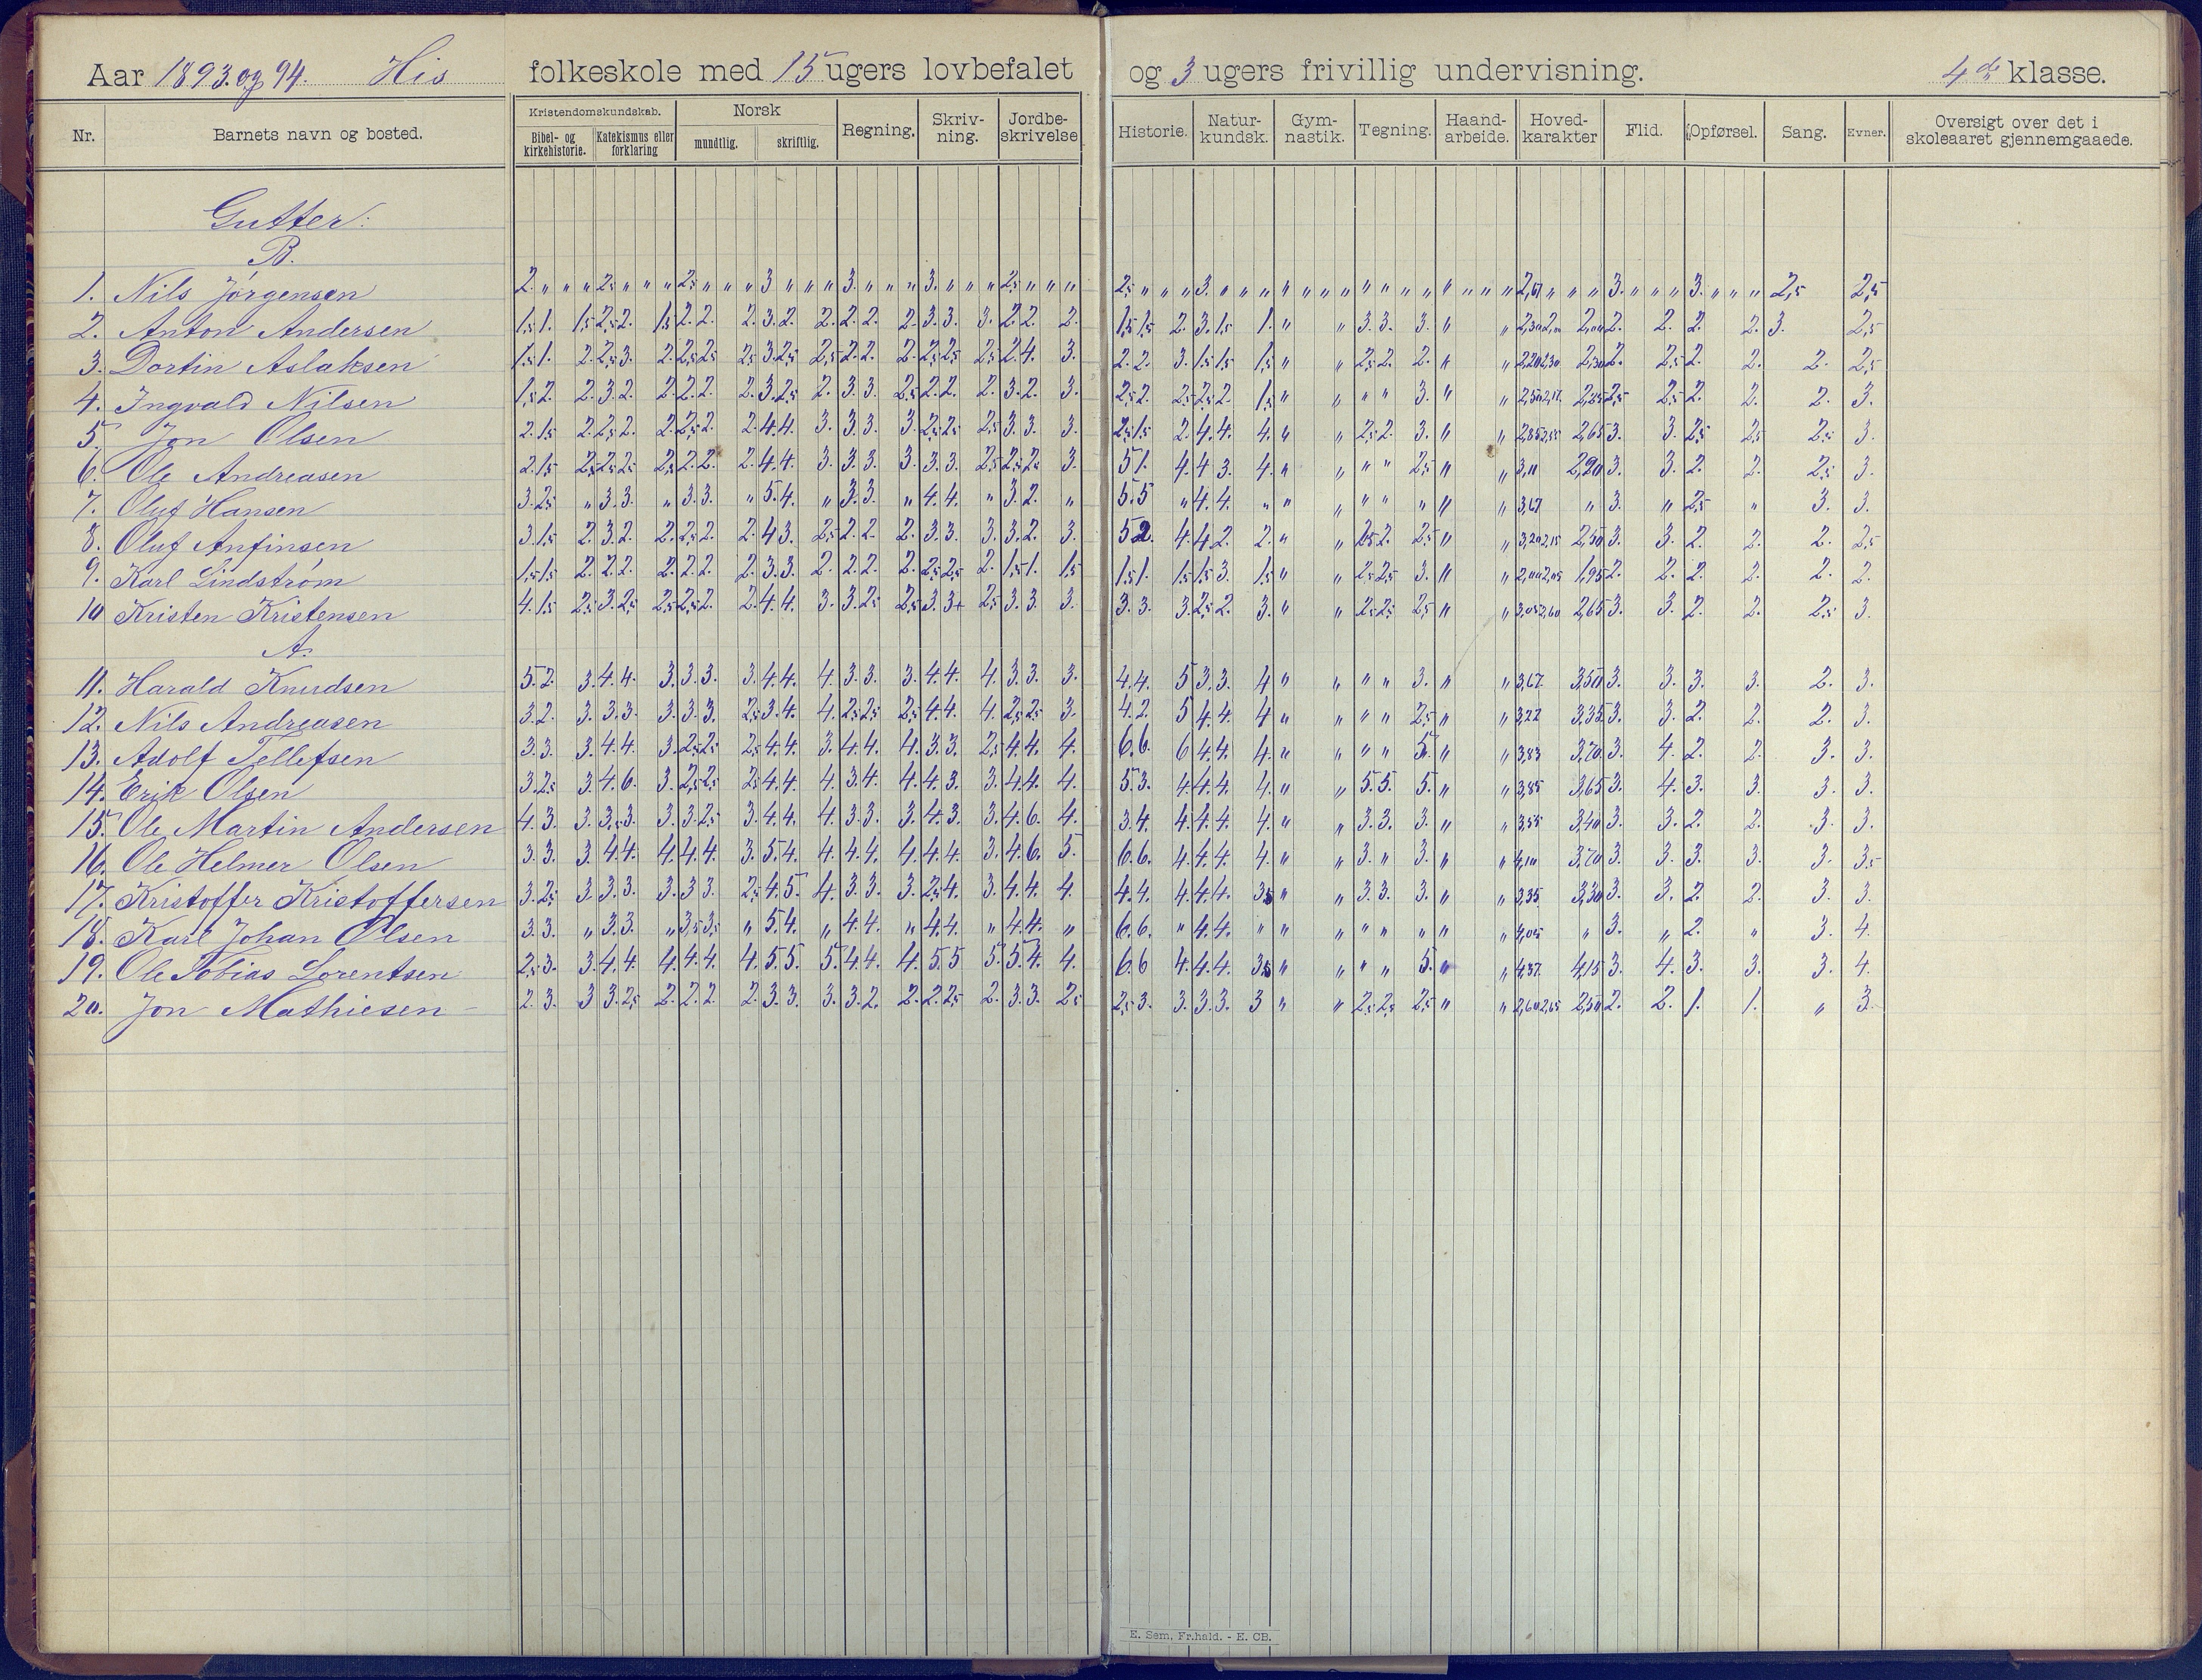 Aar 1893 og 94. His folkeskole med 15 ugers lovbefalet og 3 ugers frivillig undervisning. 4de klasse.
Nr. Barnets navn og bosted. Kristendomskundskab. Norsk Regning. Skriv-ning. Jordbe-skrivelse Historie. Natur-kundsk. Gym-nastik. Tegning. Haand-arbeide. Hoved-karakter Flid. Opførsel. Sang. Evner. Oversigt over det i skoleaaret gjennemgaaede.
Bibel- og kirkehistorie. Katekismus eller forklaring mundtlig. skriftlig.
Gutter:
B.
1. Nils Jörgensen 2. „ „ „ 2,5 „ „ „ 2,5 „ „ „ 3 „ „ „ 3. „ „ „ 3. „ „ „ 2,5 „ „ „ 2,5 „ „ „ 3. „ „ „ „ „ „ „ „ „ „ „ „ „ „ „ 2,67 „ „ „ 3. „ „ „ 3. „ „ „ 2,5 2,5
2. Anton Andersen 1,5 1. 1,5 2,5 2. 1,5 2. 2. 2. 3. 2. 2. 2. 2. 2. 3. 3. 3. 2. 2. 2. 1,5 1,5 2. 3. 1,5 1. „ „ 3. 3. 3. „ „ 2. 2. 2. 2. 3. 2,5
3. Dortin Aslaksen 1,5 1. 2. 2,5 3. 2. 2,5 2,5 2,5 3. 2,5 2,5 2. 2. 2. 2,5 2,5 2,5 2. 4. 3. 2. 2. 3. 1,5 1,5 1,5 „ „ 2,5 2. 2. „ „ 2,20 2,30 2. 2,5 2. 2. 2. 2,5
4. Ingvald Nilsen 1,5 2. 2. 3. 2. 2. 2. 2. 2. 3. 2,5 2. 3. 3. 2,5 2. 2. 2. 3. 2. 3. 2,5 2. 2,5 2,5 2. 1,5 „ „ „ „ 3. „ „ 2,5 2,5 2. 2. 2. 3.
5. Jon Olsen 2. 1,5 2. 2,5 2. 2. 2,5 2. 2. 4. 4. 3. 3. 3. 3. 2,5 2,5 2,5 3. 3. 3. 2,5 1,5 2. 4. 4. 4. „ „ 2,5 2. 3. „ „ 2,85 2,55 2,65 3. 3. 2,5 2,5 2,5 3.
6. Ole Andreasen 2. 1,5 2,5 2,5 2,5 2,5 2. 2. 2. 4. 4. 3. 3. 3. 3. 3. 3. 2,5 2,5 2,5 3. 5 1. 4. 4 3. 4. „ „ „ „ 2,5 „ „ 3,11 2,90 3. 3. 2. 2. 2,5 3.
7. Oluf Hansen 3. 2,5 „ 3. 3. „ 3. 3. „ 5. 4. „ 3. 3. „ 4. 4. „ 3. 2. „ 5. 5 „ 4. 4. „ „ „ „ „ „ „ „ 3,67 „ 3. „ 2,5 „ 3. 3.
8. Oluf Anfinsen 3. 1,5 2. 3. 2. 2. 2,5 2. 2. 4 3. 2,5 2. 2. 2. 3. 3. 3. 3. 2. 3. 5 2. 4. 4 2. 2. „ „ 2. 2,5 „ „ 3. 3. 2. 2. 2. 2,5
9. Karl Lindström 1,5 1,5 2. 2. 2. 2. 2. 2. 2. 3. 3. 2. 2. 2. 2. 2,5 2,5 2. 1,5 1. 1,5 1,5 1. 1,5 1,5 3. 1,5 „ „ 2,5 2,5 3. „ „ 2,00 2,05 1,95 2. 2. 2. 2. 2. 2.
10 Kristen Kristensen 4. 1,5 2,5 3. 2,5 2,5 2,5 2. 2. 4. 4. 3. 3. 2,5 2,5 3. 3+ 2,5 3. 3. 3. 3. 3. 3. 2,5 2. 3. „ „ 2,5 2,5 2,5 „ „ 3,05 2,60 2,65 3. 3. 2. 2. 2,5 3.
A.
11. Harald Knudsen 5. 2. 3. 4. 4. 3. 3. 3. 3. 4. 4. 4 3. 3. 3. 4. 4. 4. 3. 3. 3. 4. 4. 5 3. 3. 4 „ „ „ „ 3. „ „ 3,67 3,50 3. 3. 3. 3. 2. 3.
12. Nils Andreasen 3. 2. 3. 3. 3. 3. 3. 3. 2,5 3. 4. 4. 2,5 2,5 2,5 4. 4. 4. 2,5 2,5 3. 4. 2. 5 4. 4. 4 „ „ „ „ 2,5 „ „ 3,22 3,35 3. 3. 2. 2. 2. 3.
13. Adolf Tellefsen 3. 3. 3. 4. 4. 3. 2,5 2,5 2,5 4. 4. 3. 4. 4. 4. 3. 3. 2,5 4. 4. 4. 6. 6. 6 4. 4. 4. „ „ „ „ 5. „ „ 3,83 3,70 3. 4. 2. 2. 3. 3.
14. Erik Olsen 3. 2,5 3. 4. 6. 3. 2,5 2,5 2,5 4. 4. 4. 3. 4. 4. 4. 3. 3. 4. 4. 4. 5. 3. 4. 4. 4. 4. „ „ 5. 5. 5. „ „ 3,85 3,65 3. 4. 3. 3. 3. 3.
15. Ole Martin Andersen 4. 3. 3. 3,5 3. 3. 3. 2,5 3. 4. 4. 4. 3. 3. 3. 4. 3. 3. 4. 6. 4. 3. 4. 4. 4. 4. 4. „ „ 3. 3. 3. „ „ 3,55 3,40 3. 3. 2. 2. 3. 3.
16. Ole Helmer Olsen 3. 3. 3. 4. 4. 4. 4. 4. 3. 5. 4. 4. 4. 4. 4. 4. 4. 3. 4. 6. 5. 6. 6. 4. 4. 4. 4. „ „ 3. „ 3. „ „ 4,10 3,70 3. 3. 3. 3. 3. 3,5
17. Kristoffer Kristoffersen 3. 2,5 3. 3. 3. 3. 3. 3. 2,5 4. 5. 4. 3. 3. 3. 2,5 4. 3. 4. 4. 4. 4. 4. 4. 4. 4. 3,5 „ „ 3. 3. 3. „ „ 3,35 3,30 3. 3. 2. 2. 3. 3.
18. Karl Johan Olsen 3. 3. „ 3. 3. „ 3,5 3,5 „ 5. 4. „ 4. 4. „ 4. 4. „ 4. 4. „ 6. 6. „ 4. 4. „ „ „ „ „ „ „ „ 4,05 „ 3. „ 2. „ 3. 4.
19. Ole Tobias Lorentsen 2,5 3. 3. 4. 4. 4. 4. 4. 4. 5. 5. 5. 4. 4. 4. 5. 5 5. 5. 4. 4. 6. 6 4. 4. 4. 3,5 „ „ „ „ 5. „ „ 4,37 4,15 3. 4. 3. 3. 3. 4.
20. Jon Mathiesen 2. 3. 3 3. 2,5 2. 2. 2. 2. 3. 3. 3. 3. 2. 2. 2. 2,5 2. 3. 3. 2,5 2,5 3. 3. 3. 3. 3 „ „ 2,5 2,5 2,5 „ „ 2,60 2,65 2,50 2. 2. 1. 1. „ 3.
E. Sem, Fr.hald. - E. CB.